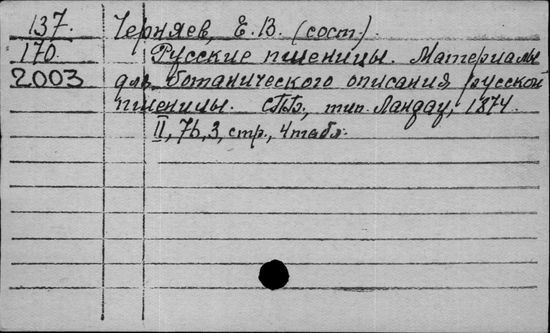 137. Черняев, Е. В. (сост).
170. Русские пшеницы. Материалы
2003 для ботанического описания русской
пшеницы. СПБ., тип. Ландау, 1874.
II, 76, 3, стр., 4 табл.